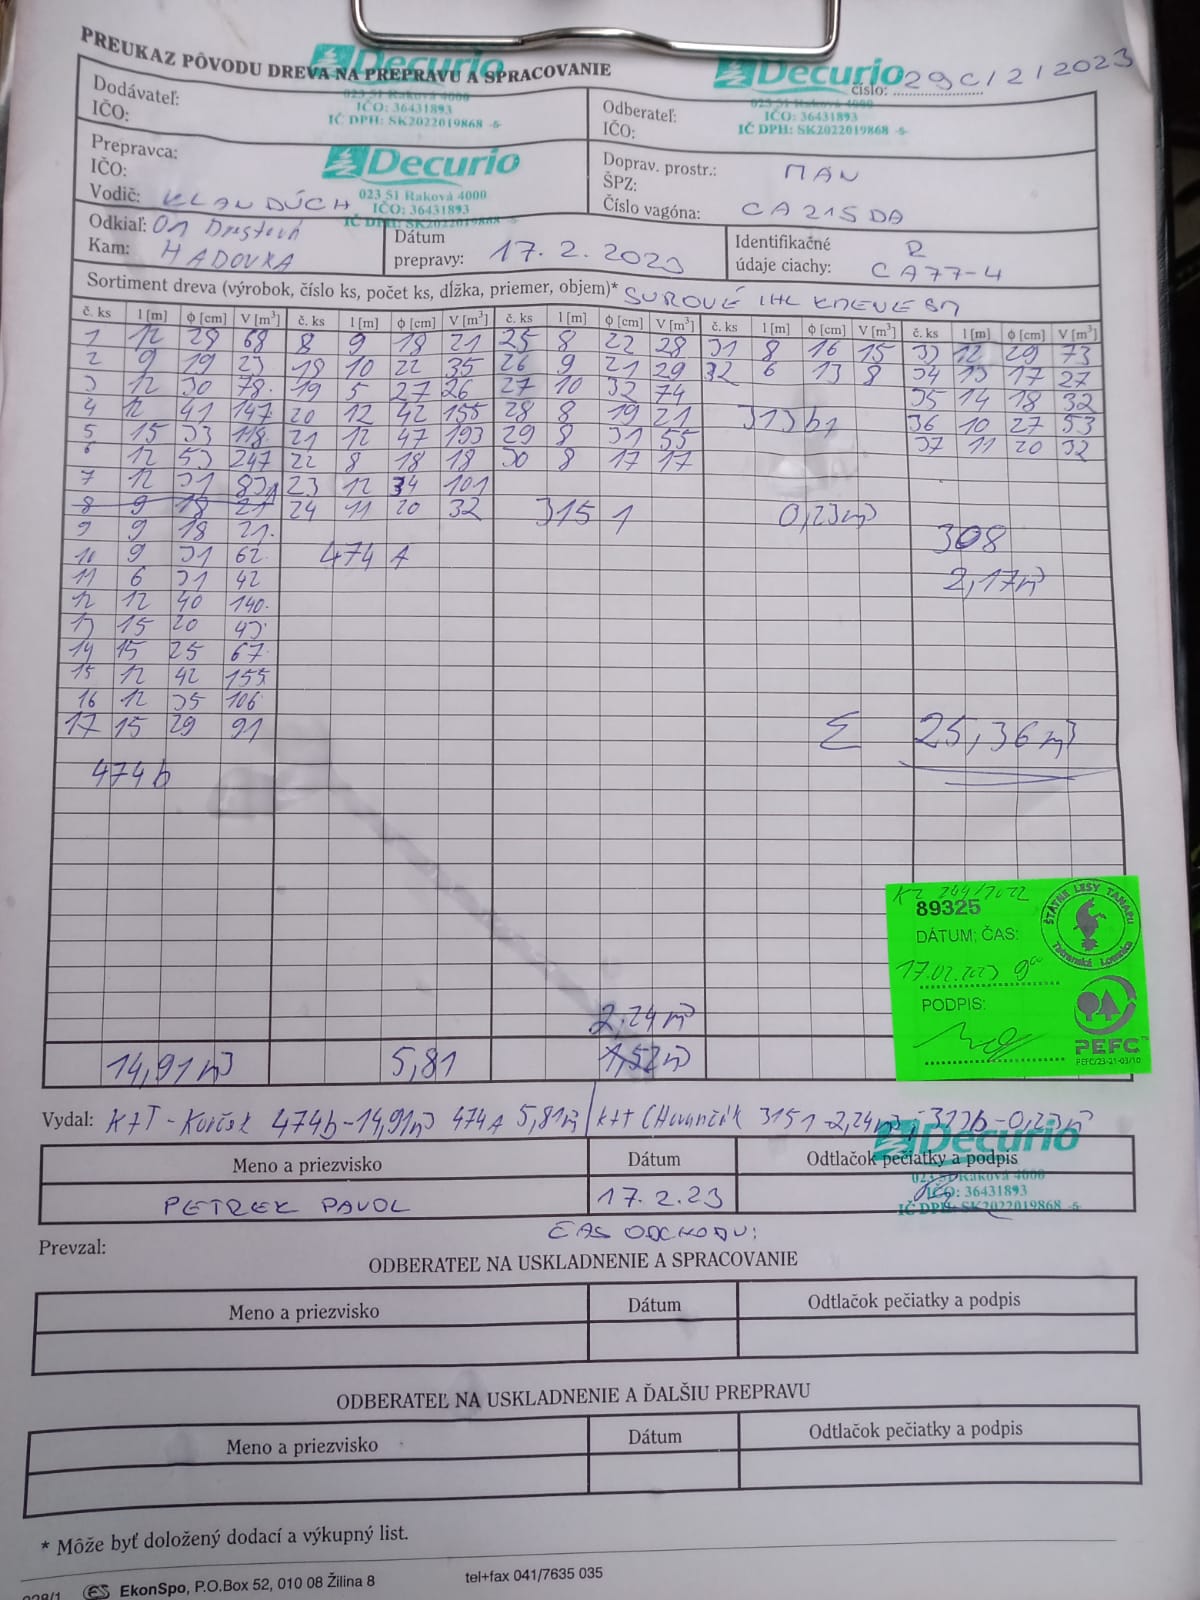 PREUKAZ PÔVODU DREVA NA PREPRAVU A SPRACOVANIE
Decurio
023 51 Raková 4000
IČO: 36431893
IČ DPH: SK2022019868 -5-
Decurio
číslo: 29C/2/2023
023 51 Raková 4000
IČO: 36431893
IČ DPH: SK2022019868 -5-
Dodávateľ:
IČO:
Odberateľ:
IČO:
Prepravca:
IČO:
Vodič: KLANDÚCH
Decurio
023 51 Raková 4000
IČO: 36431893
IČ DPH: SK2022019868
Doprav. prostr.: MAN
ŠPZ:
Číslo vagóna: CA215DA
Odkiaľ: O1
Kam: HADOVKA
Dátum
prepravy: 17. 2. 2023
Identifikačné R
údaje ciachy: CA77-4
Sortiment dreva (výrobok, číslo ks, počet ks, dĺžka, priemer, objem)* SUROVÉ IHL KMENE SM
č. ks l [m] φ [cm] V [m³] č. ks l [m] φ [cm] V [m³] č. ks l [m] φ [cm] V [m³] č. ks l [m] φ [cm] V [m³] č. ks l [m] φ [cm] V [m³]
1 12 28 68 8 9 18 21 25 8 22 28 31 8 16 15 33 12 29 73
2 9 19 23 18 10 22 35 26 9 21 29 32 6 13 8 34 13 17 27
3 12 30 78 19 5 27 26 27 10 32 74 35 14 18 32
4 12 41 147 20 12 42 155 28 8 19 21 313b1 36 10 27 53
5 15 33 118 21 12 47 193 29 8 31 55 37 11 20 32
6 12 53 247 22 8 18 18 30 8 17 17
7 12 31 83 23 12 34 101
8 9 18 21 24 11 20 32 315 1 0,23m³
9 9 18 21 308
10 9 31 62 474 A
11 6 31 42 2,17m³
12 12 40 140
13 15 20 43
14 15 25 67
15 12 42 155
16 12 35 106
17 15 29 91 Σ 25,36m³
474b
KZ 244/2022
89325
DÁTUM; ČAS:
17.02.2023 9
PODPIS:
ŠTÁTNE LESY TANAPU
Tatranská Lomnica
PEFC
PEFC/23-21-03/10
2.24m³
14,91m³ 5,81 1,52m³
Vydal: KŽT - 474b-14,91m³ 474A 5,81m³ / 3151 -2,24m³; 313b-0,23m³
Decurio
Meno a priezvisko Dátum Odtlačok pečiatky a podpis
023 51 Raková 4000
IČO: 36431893
IČ DPH: SK2022019868 -5-
PETREK PAVOL 17. 2. 23
ČAS ODCHODU:
Prevzal:
ODBERATEĽ NA USKLADNENIE A SPRACOVANIE
Meno a priezvisko Dátum Odtlačok pečiatky a podpis
ODBERATEĽ NA USKLADNENIE A ĎALŠIU PREPRAVU
Meno a priezvisko Dátum Odtlačok pečiatky a podpis
* Môže byť doložený dodací a výkupný list.
ES EkonSpo, P.O.Box 52, 010 08 Žilina 8 tel+fax 041/7635 035